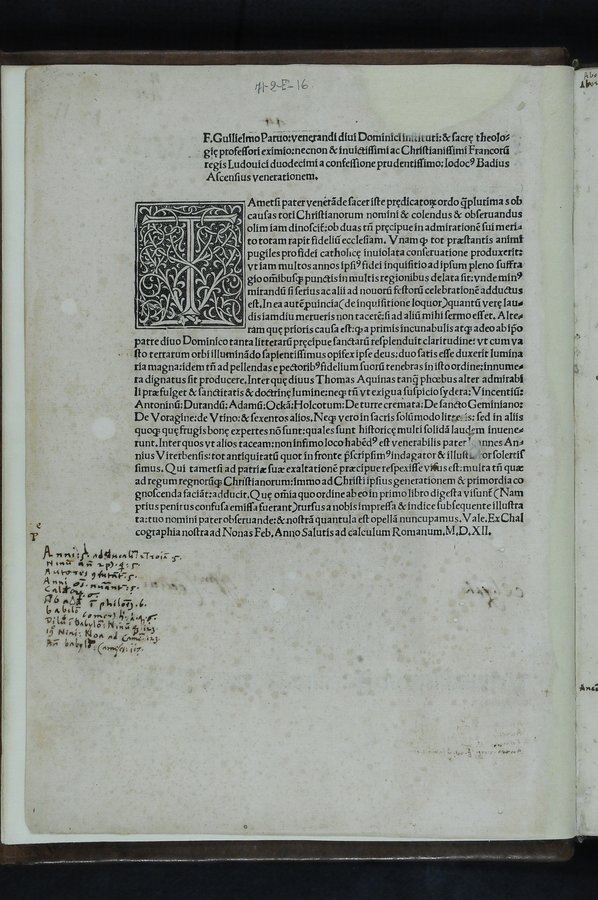 71-2-E-16
F. Guilielmo Paruo: venerandi diui Dominici instituti: & sacrę theolo⸗
gię professori eximio: necnon & inuictissimi ac Christianissimi Francorũ
regis Ludouici duodecimi a confessione prudentissimo: Iodocꝰ Badius
Ascensius venerationem.
TAmetsi pater venerãde sacer iste prędicatorꝝ ordo ꝙplurima s ob
causas toti Christianorum nomini & colendus & obseruandus
olim iam dinoscit: ob duas tñ pręcipue in admirationẽ sui meri⸗
to totam rapit fideliũ ecclesiam. Vnam ꝙ tot præstantis animi
pugiles pro fidei catholicę inuiolata conseruatione produxerit:
vt iam multos annos ipsiꝰ fidei inquisitio ad ipsum pleno suffra
gio omĩbusꝗ punctis in multis regionibus delata sit: vnde minꝰ
mirandũ si serius ac alii ad nouorũ festorũ celebrationẽ adductus
est. In ea autẽ ꝓuincia (de inquisitione loquor) quantũ verę lau⸗
dis iam diu merueris non tacerẽ: si ad aliũ mihi sermo esset. Alte⸗
ram quę prioris causa est: ꝙ a primis incunabulis atꝗ adeo ab ip̃o
patre diuo Dominico tanta litterarũ pręcipue sanctarũ resplenduit claritudine: vt cum va
sto terrarum orbi illuminãdo sapientissimus opifex ipse deus: duo satis esse duxerit lumina
ria magna: idem tñ ad pellendas e pectoribꝰ fidelium suorũ tenebras in isto ordine: innume⸗
ra dignatus sit producere. Inter quę diuus Thomas Aquinas tanꝗ̃ phœbus alter admirabi
li præfulget & sanctitatis & doctrinę lumine: neꝗ tñ vt exigua suspicio sydera: Vincentiũ:
Antoninũ: Durandũ: Adamũ: Ockã: Holcotum: De turre cremata: De sancto Geminiano:
De Voragine: de Vtino: & sexcentos alios. Neꝗ vero in sacris solũmodo litteris: sed in aliis
quoꝗ quę frugis bonę expertes nõ sunt: quales sunt historicę multi solidã laudem inuene⸗
runt. Inter quos vt alios taceam: non infimo loco habẽdꝰ est venerabilis pater Ioannes An⸗
nius Viterbensis: tot antiquitatũ quot in fronte p̃scripsimꝰ indagator & illustrator solertis
simus. Qui tametsi ad patriæ suæ exaltationẽ præcipue respexisse visus est: multa tñ quæ
ad regum regnorũꝗ Christianorum: immo ad Christi ipsius generationem & primordia co
gnoscenda faciãt: adducit. Quę om̃ia quo ordine ab eo in primo libro digesta visunť (Nam
prius penitus confusa emissa fuerant) rursus a nobis impressa & indice subsequente illustra
ta: tuo nomini pater obseruande: & nostrã quantula est opellã nuncupamus. Vale. Ex Chal
cographia nostra ad Nonas Feb. Anno Salutis ad calculum Romanum. M. D. XII.